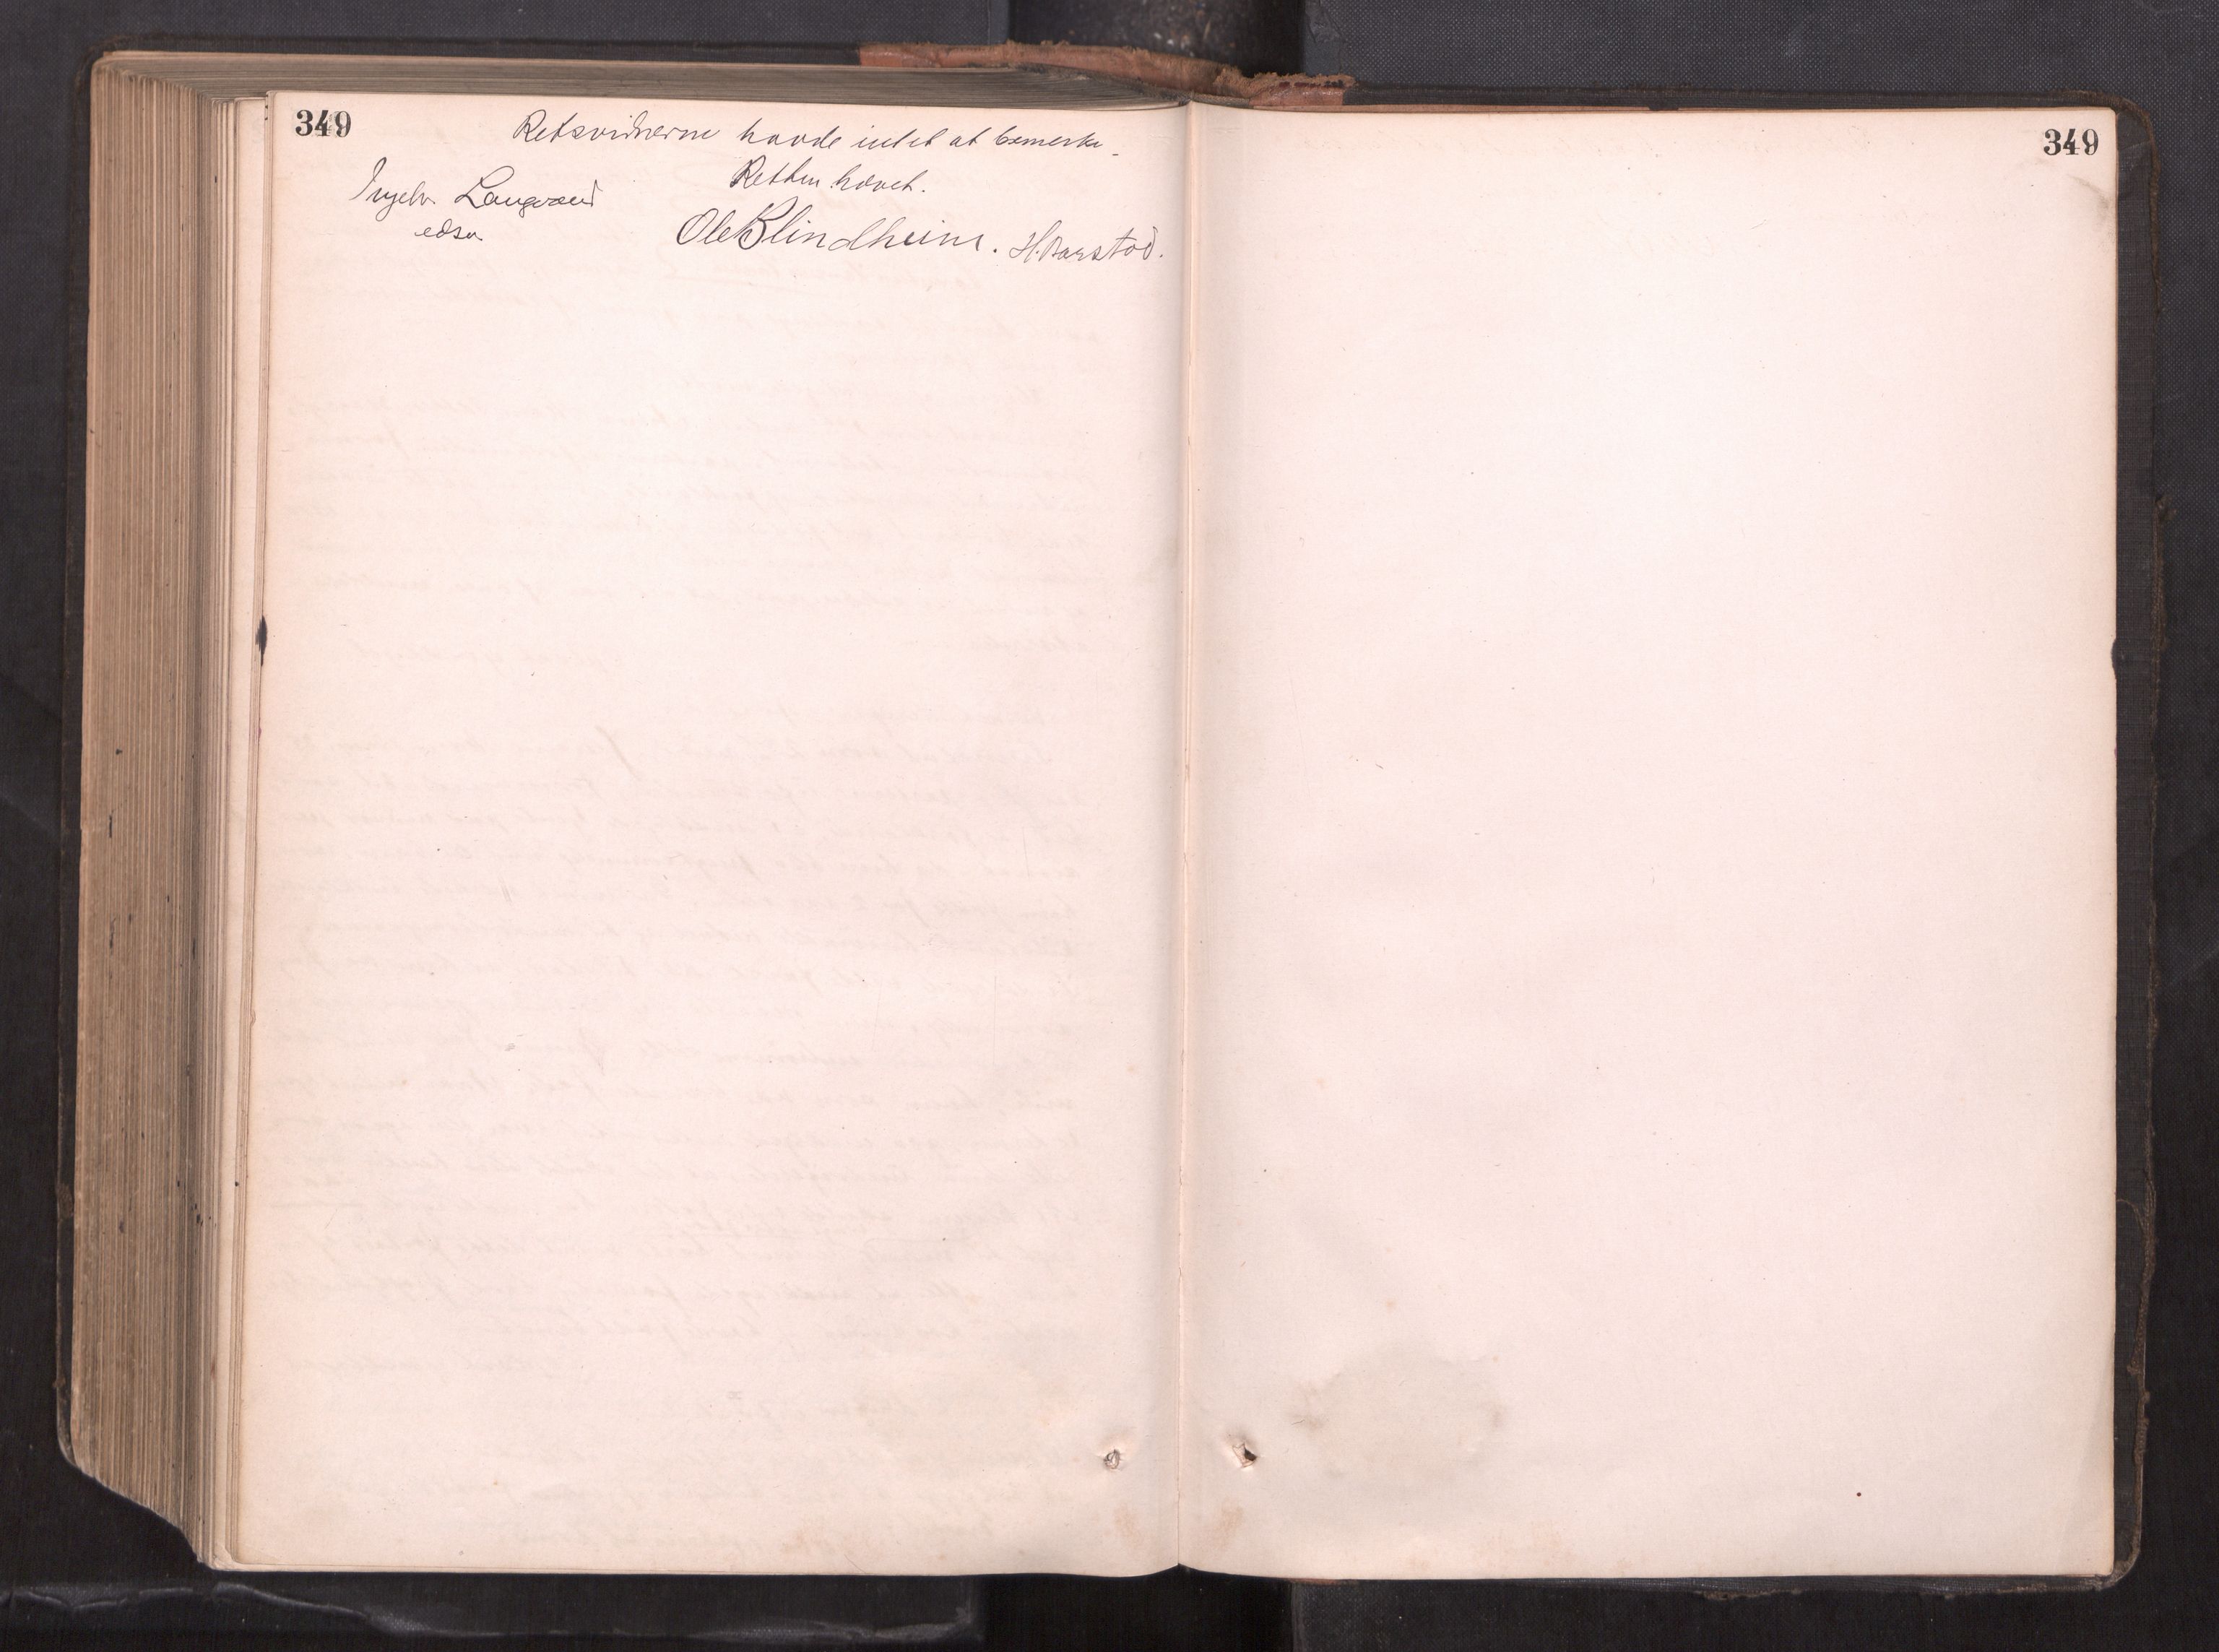 349
Retsvidnerne havde intet at bemerke.
Retten hævet.
Ingebr. Langsæd
edsv
Ole Blindheim. H. Barstad.
349